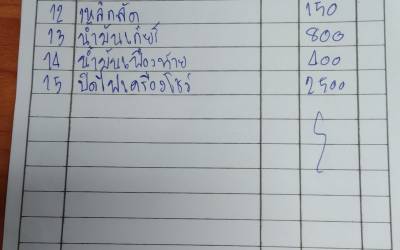 12 เหล็กดัด 150
13 น้ำมันเกียร์ 800
14 น้ำมันเฟืองท้าย 400
15 ปิดไฟเครื่องโชว์ 2500